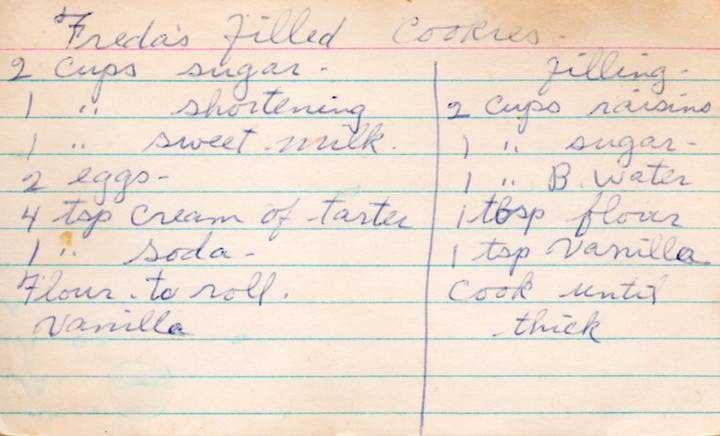 Freda's Filled Cookies.
2 cups sugar.
1 " shortening
1 " sweet milk.
2 eggs-
4 tsp cream of tarter
1 " soda-
Flour to roll.
Vanilla
Filling-
2 cups raisins
1 " sugar-
1 " B. Water
1 tbsp flour
1 tsp Vanilla
Cook until
thick